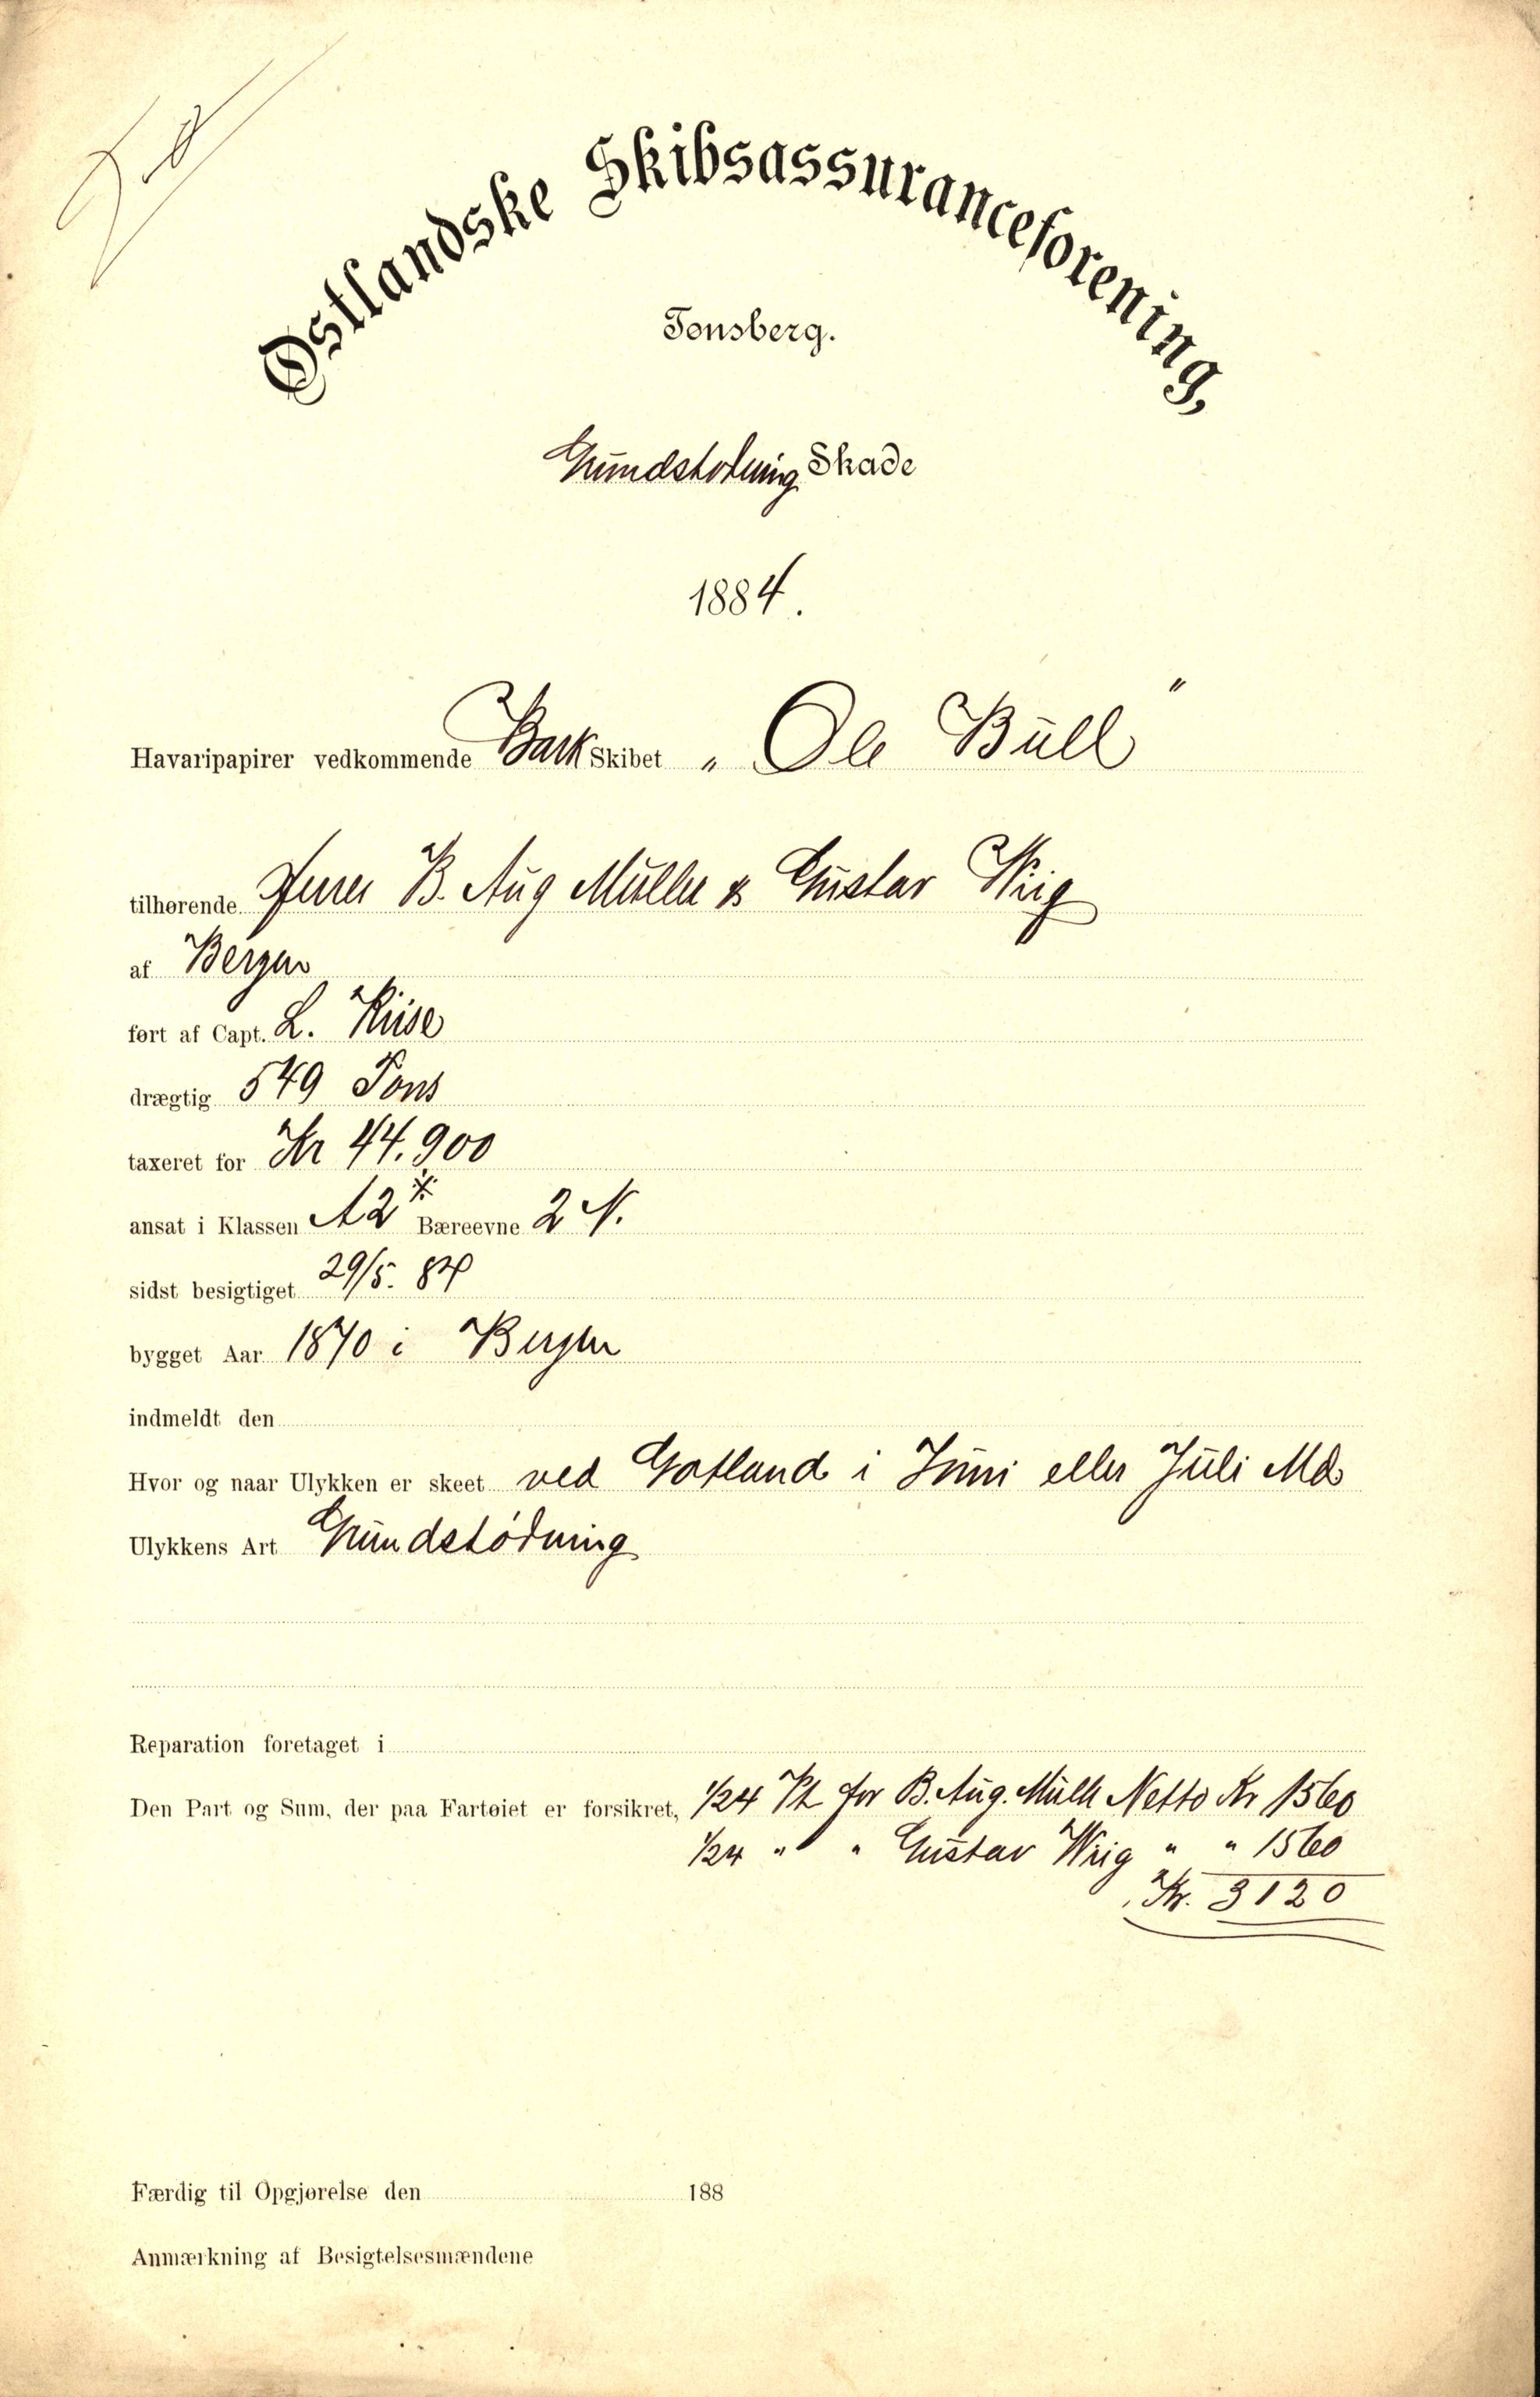 Østlandske Skibsassuranceforening,
Tønsberg.
Grundstødning Skade
1884.
Havaripapirer vedkommende Bark Skibet „Ole Bull"
tilhørende Herrer B. Aug Müller & Gustav Wiig
af Bergen
ført af Capt. L. Riise
drægtig 549 Tons
taxeret for Kr 44.900
ansat i Klassen A2* Bæreevne 2 N.
sidst besigtiget 29/5. 84
bygget Aar 1870 i Bergen
indmeldt den
Hvor og naar Ulykken er skeet ved Gotland i Juni eller Juli Md
Ulykkens Art Grundstødning
Reparation foretaget i
Den Part og Sum, der paa Fartøiet er forsikret, 1/24 Pt for B. Aug. Müller Netto Kr 1560
1/24 " " Gustav Wiig " " 1560
Kr. 3120
Færdig til Opgjørelse den 188
Anmærkning af Besigtelsesmændene